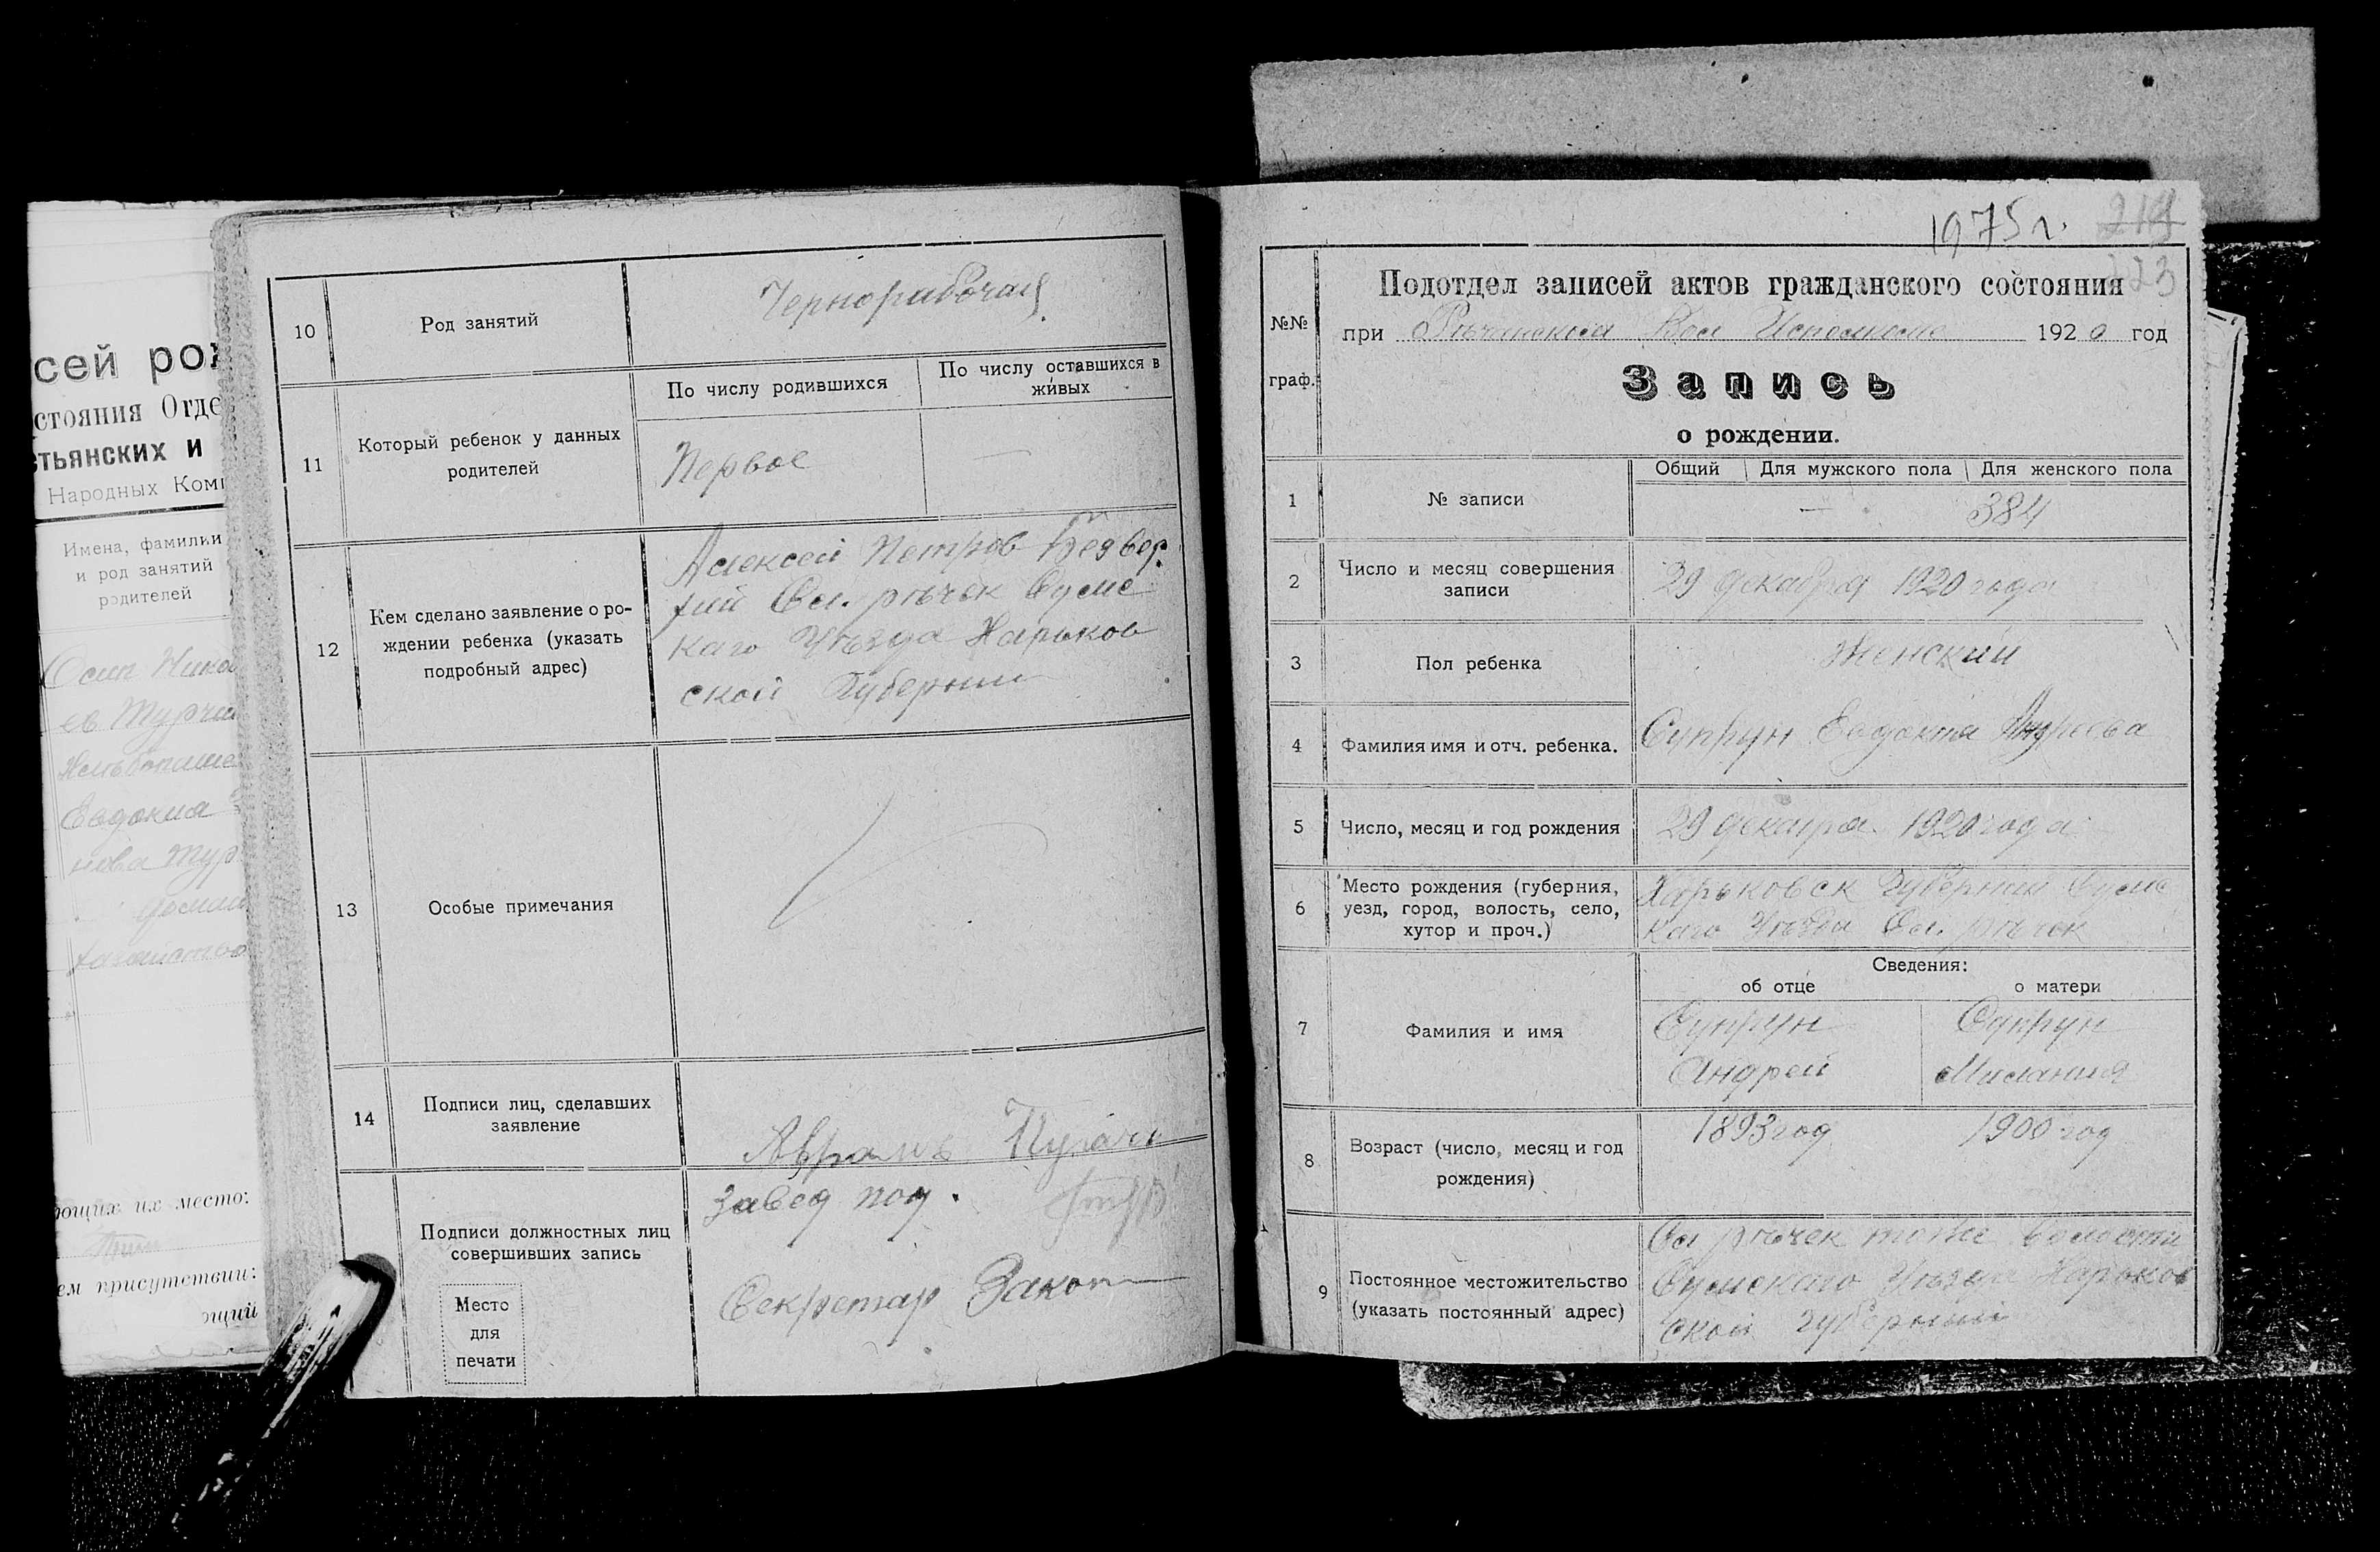 сей рож
стояния Отде
стьянских и
Народных Коми
Имена, фамилии
и род занятий
родителей
Осип Никола
ев Турчи
Евдокия
нова Тур
ющих их место:
ем присутствии:
ющий
10
Род занятий
Чернорабочая
11
Который ребенок у данных
родителей
По числу родившихся
По числу оставшихся в
живых
Первое
—
12
Кем сделано заявление о ро-
ждении ребенка (указать
подробный адрес)
Алексей Петров
Сел. рѣчек Сумс
каго Уѣзда Харьков
ской Губернии
13
Особые примечания
14
Подписи лиц, сделавших
заявление
Пугачъ
Подписи должностных лиц
совершивших запись
Завед под.
Секретар
Место
для
печати
1975г.
214
223
№№
граф.
Подотдел записей актов гражданского состояния
при Рѣчанском Вол Исполкоме 1920 год
Запись
о рождении.
1
№ записи
Общий
Для мужского пола
Для женского пола
—
384
2
Число и месяц совершения
записи
29 декабря 1920 года
3
Пол ребенка
Женский
4
Фамилия имя и отч. ребенка.
Супрун Евдокия Андреева
5
Число, месяц и год рождения
29 декабря 1920 года
6
Место рождения (губерния,
уезд, город, волость, село,
хутор и проч.)
Харьковск Губернии Сумс
каго Уѣзда Сел. рѣчек
Сведения:
об отце
о матери
7
Фамилия и имя
Супрун
Андрей
Супрун
Милания
8
Возраст (число, месяц и год
рождения)
1893 год
1900 год
9
Постоянное местожительство
(указать постоянный адрес)
Сел рѣчек тоже волости
Сумскаго Уѣзда Харьков
ской губернии